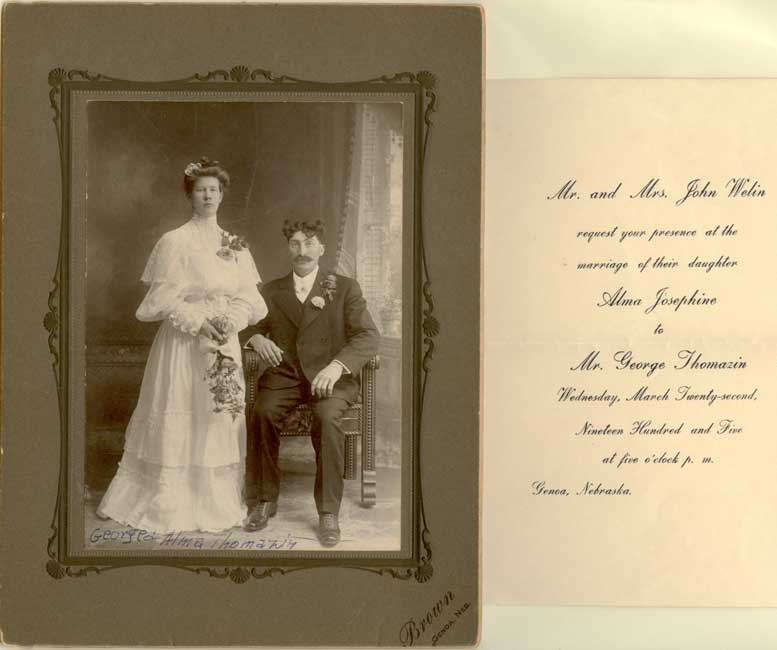 George & Alma Thomazin
Brown
Genoa, Neb.
Mr. and Mrs. John Welin
request your presence at the
marriage of their daughter
Alma Josephine
to
Mr. George Thomazin
Wednesday, March Twenty-second,
Nineteen Hundred and Five
at five o'clock p. m.
Genoa, Nebraska.